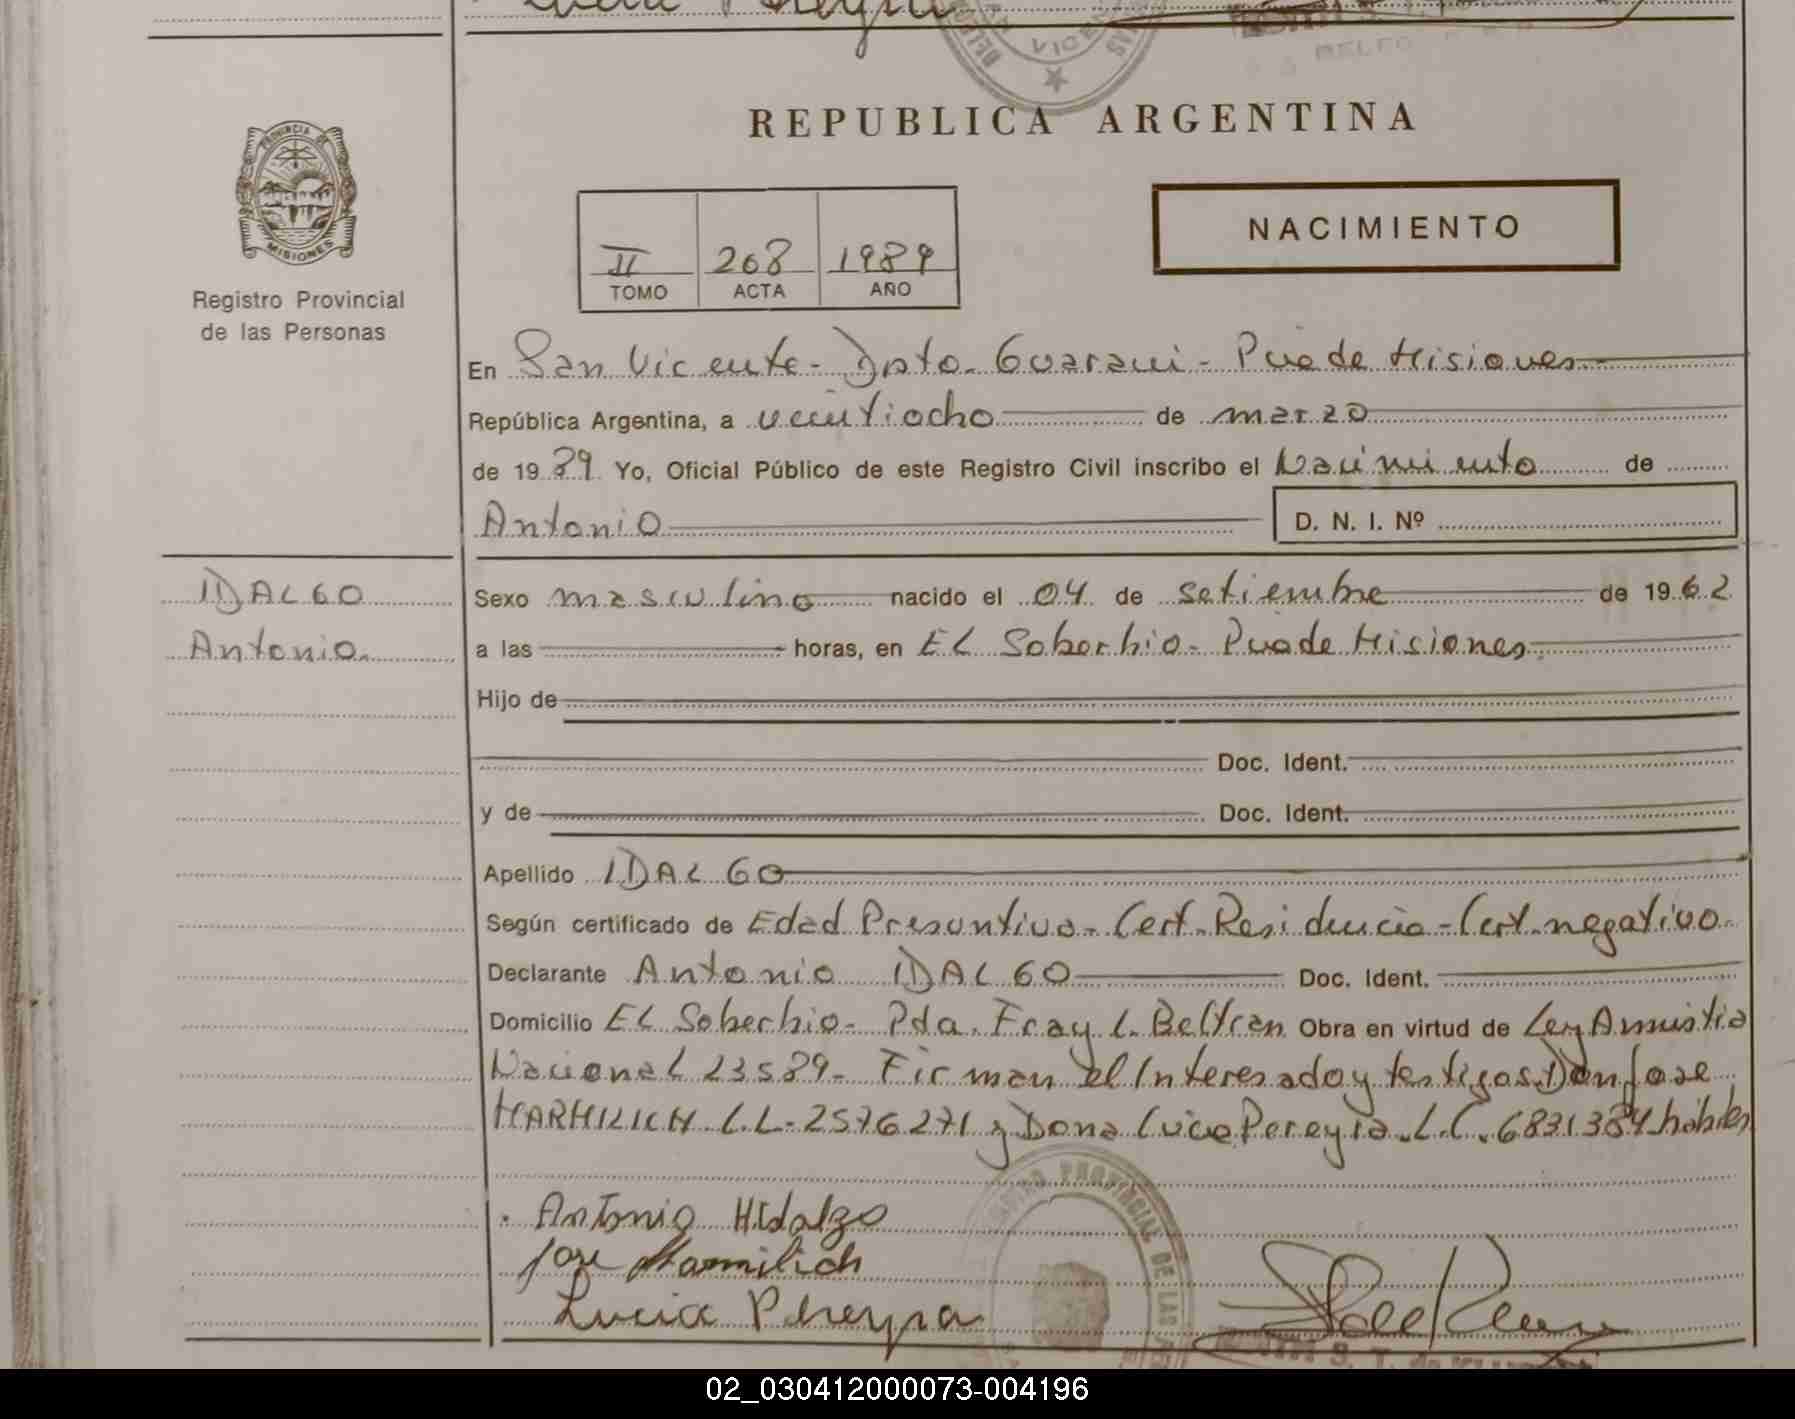 Lucia Pereyra
VICE
REPUBLICA ARGENTINA
PROVINCIA DE
MISIONES
Registro Provincial
de las Personas
II 268 1989
TOMO ACTA AÑO
NACIMIENTO
En San Vicente - Dpto. Guarani - Pvia de Misiones
República Argentina, a veintiocho de marzo
de 19 89 Yo, Oficial Público de este Registro Civil inscribo el Nacimiento de
Antonio D. N. I. Nº
IDALGO
Antonio
Sexo masculino nacido el 04 de setiembre de 19 62
a las horas, en EL Soberbio - Pvia de Misiones
Hijo de
Doc. Ident.
y de Doc. Ident.
Apellido IDALGO
Según certificado de Edad Presuntiva - Cert. Residencia - Cert. negativo
Declarante Antonio IDALGO Doc. Ident.
Domicilio EL Soberbio - Pda. Fray L. Beltran Obra en virtud de Ley Amnistia
Nacional 23589 - Firman el Interesado y testigos Don Jose
MARMILICH L.L. 2576271 y Dona Lucia Pereyra L.C. 6831384 habiles
Antonio Hidalgo
Jose Marmilich
Lucia Pereyra
PROVINCIAL DE LAS
02_030412000073-004196